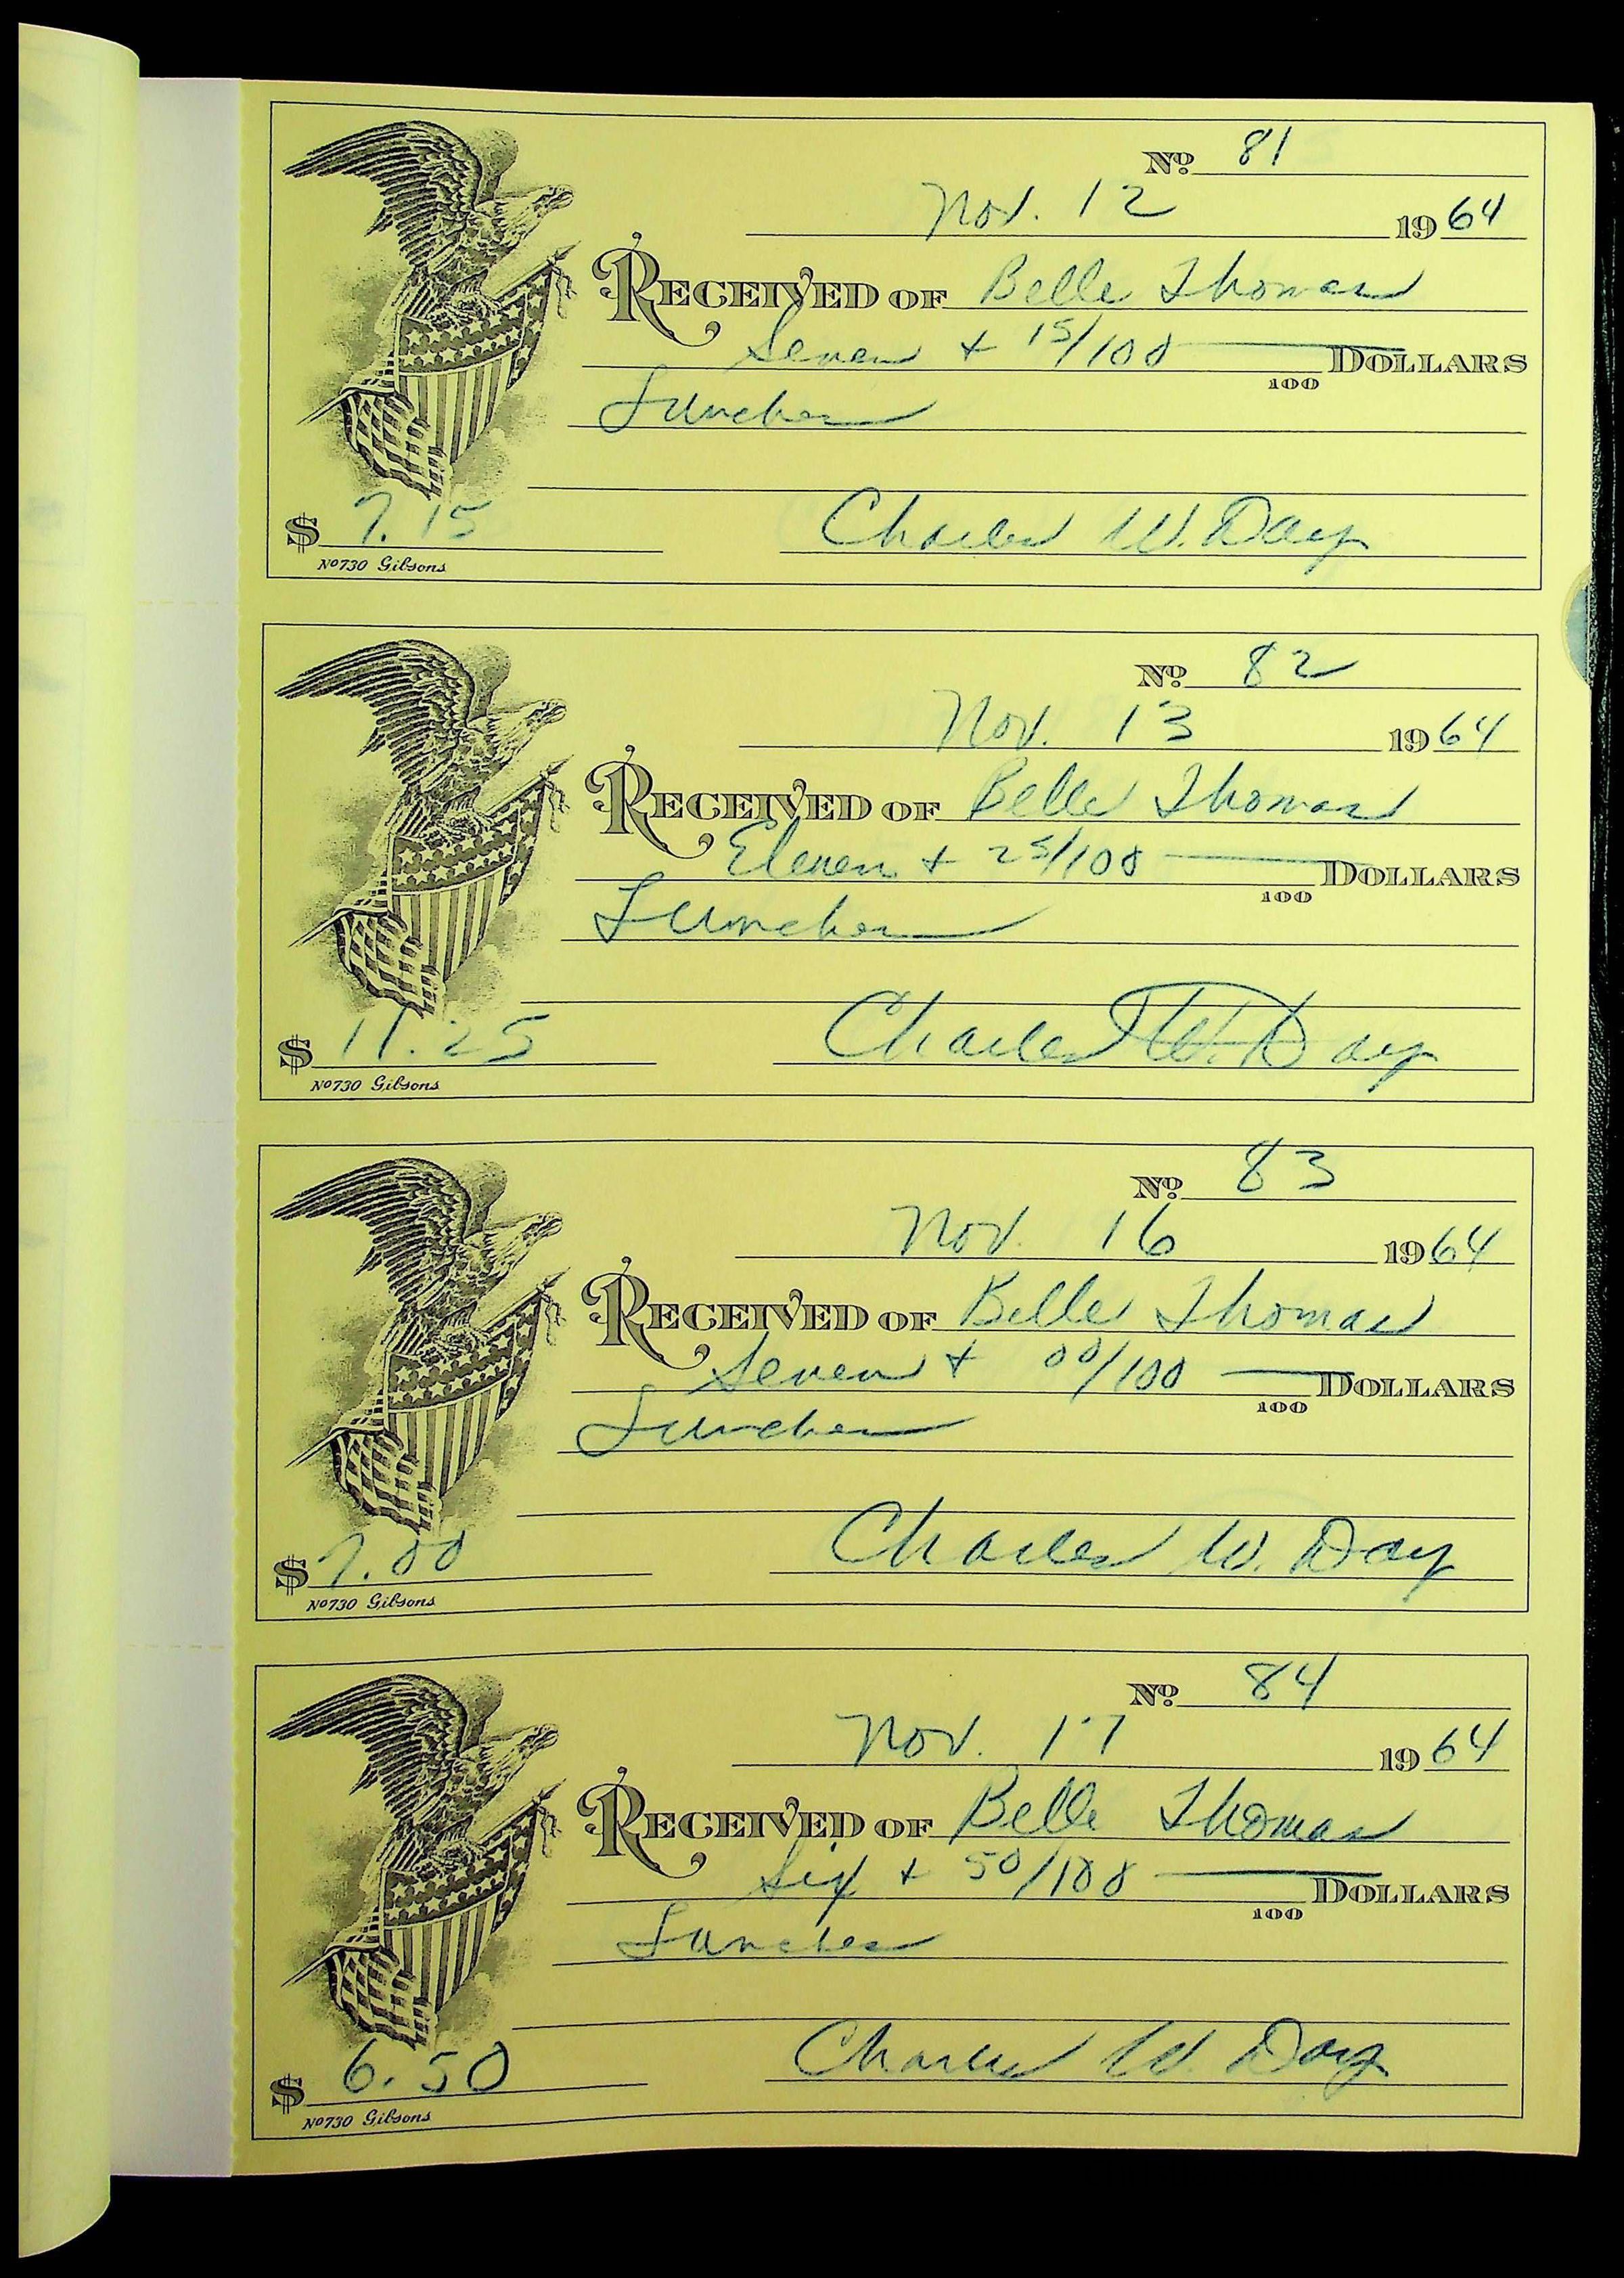 No. 81
Nov. 12 1964
RECEIVED OF Belle Thomas
Seven + 15/100 DOLLARS
100
Lunches
$ 7.15 Charles W. Day
No 730 Gibsons
No. 82
Nov. 13 1964
RECEIVED OF Belle Thomas
Eleven + 25/100 DOLLARS
100
Lunches
$ 11.25 Charles W. Day
No 730 Gibsons
No. 83
Nov. 16 1964
RECEIVED OF Belle Thomas
Seven + 00/100 DOLLARS
100
Lunches
$ 7.00 Charles W. Day
No 730 Gibsons
No. 84
Nov. 17 1964
RECEIVED OF Belle Thomas
Six + 50/100 DOLLARS
100
Lunches
$ 6.50 Charles W. Day
No 730 Gibsons